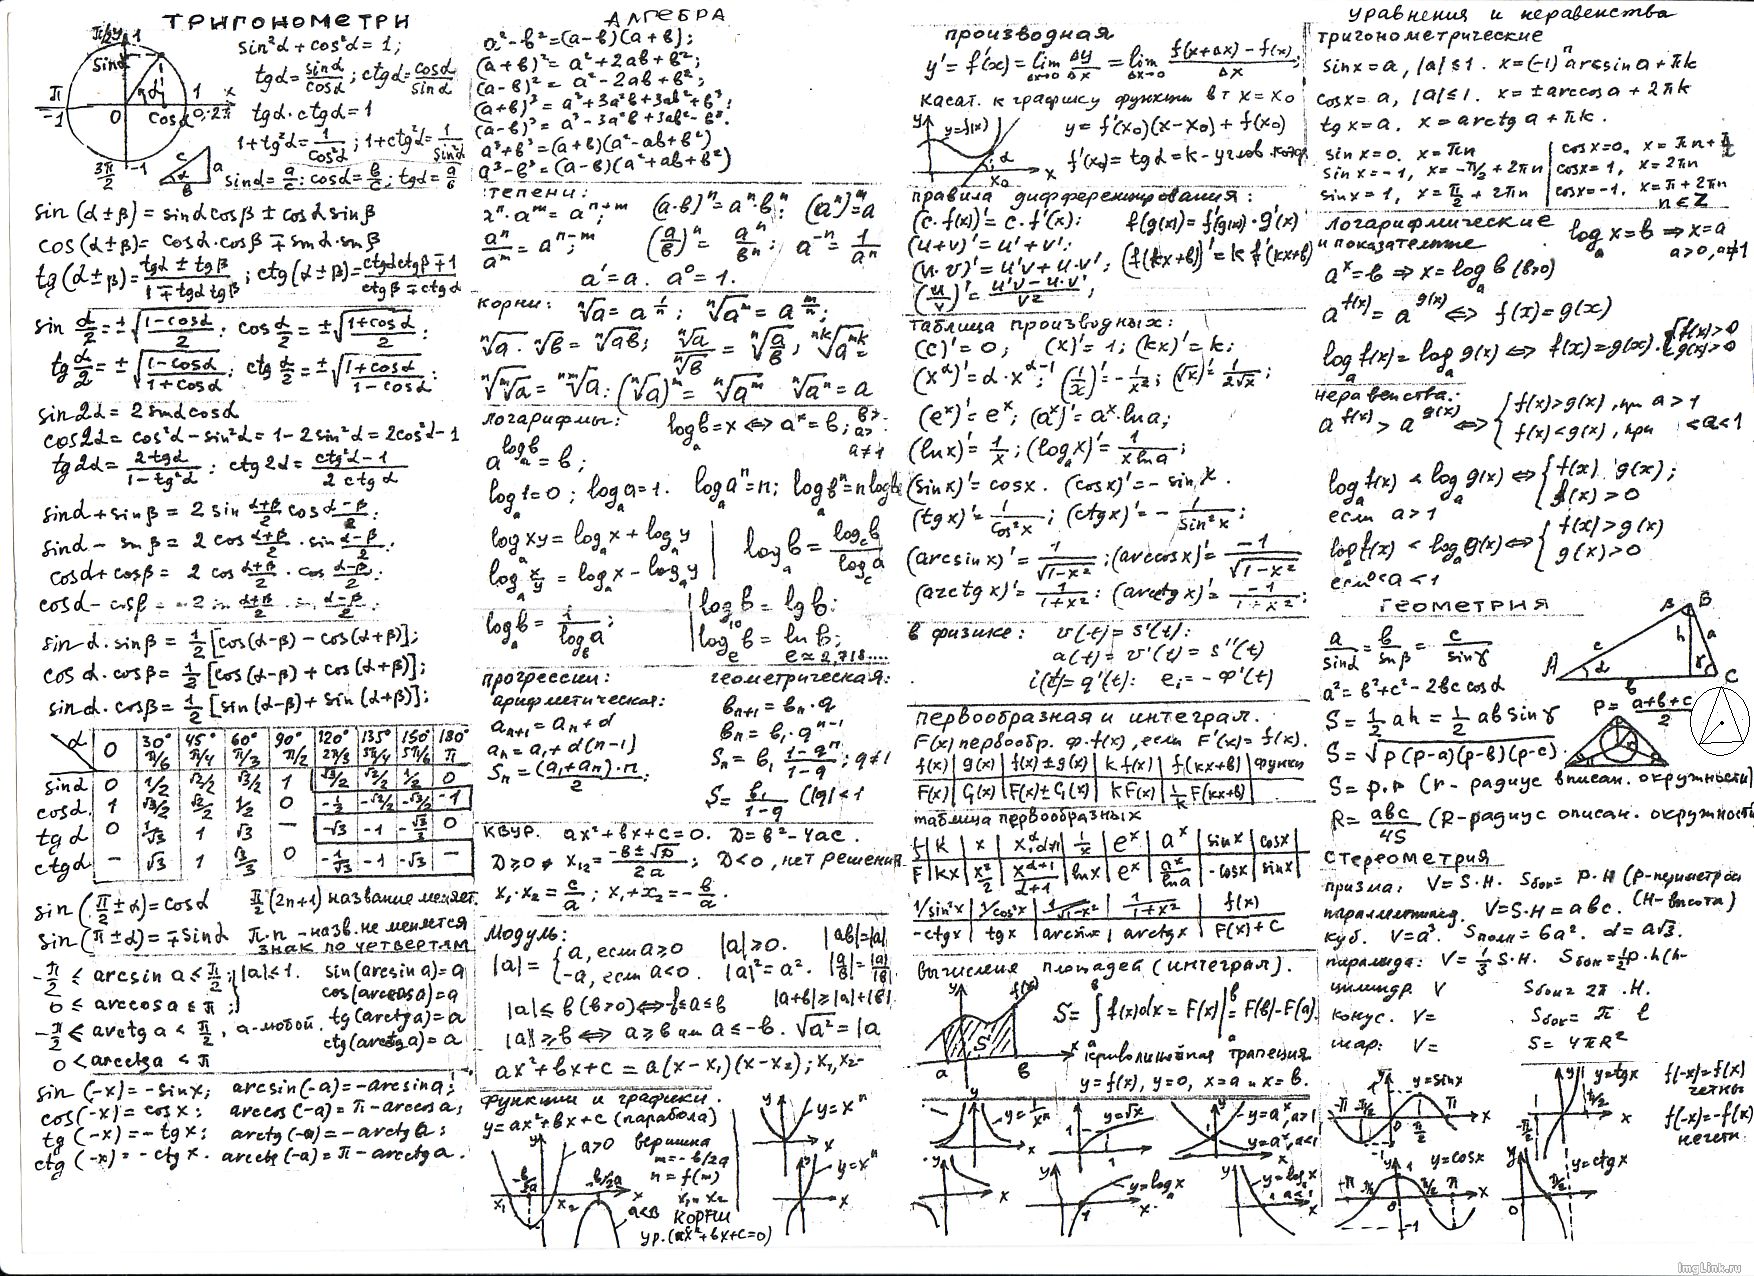 ТРИГОНОМЕТРИ
π/2 y 1
sinα
π
-1
0
cosα
1 x
0;2π
3π/2 -1
sin²α + cos²α = 1;
tgα = sinα/cosα; ctgα = cosα/sinα
tgα·ctgα = 1
1+tg²α = 1/cos²α; 1+ctg²α = 1/sin²α
sinα = a/c; cosα = в/c; tgα = a/в
sin(α±β) = sinα cosβ ± cosα sinβ
cos(α±β) = cosα·cosβ ∓ sinα·sinβ
tg(α±β) = (tgα ± tgβ)/(1 ∓ tgα tgβ); ctg(α±β) = (ctgα ctgβ ∓ 1)/(ctgβ ∓ ctgα)
sin α/2 = ±√((1-cosα)/2); cos α/2 = ±√((1+cosα)/2);
tg α/2 = ±√((1-cosα)/(1+cosα)); ctg α/2 = ±√((1+cosα)/(1-cosα));
sin2α = 2 sinα cosα
cos2α = cos²α - sin²α = 1 - 2sin²α = 2cos²α - 1
tg2α = 2·tgα/(1-tg²α); ctg2α = (ctg²α - 1)/(2 ctgα)
sinα + sinβ = 2 sin (α+β)/2 cos (α-β)/2;
sinα - sinβ = 2 cos (α+β)/2 · sin (α-β)/2;
cosα + cosβ = 2 cos (α+β)/2 · cos (α-β)/2;
cosα - cosβ = -2 sin (α+β)/2 · sin (α-β)/2
sinα·sinβ = 1/2 [cos(α-β) - cos(α+β)];
cosα·cosβ = 1/2 [cos(α-β) + cos(α+β)];
sinα·cosβ = 1/2 [sin(α-β) + sin(α+β)];
α 0 30° π/6 45° π/4 60° π/3 90° π/2 120° 2π/3 135° 3π/4 150° 5π/6 180° π
sinα 0 1/2 √2/2 √3/2 1 √3/2 √2/2 1/2 0
cosα 1 √3/2 √2/2 1/2 0 -1/2 -√2/2 -√3/2 -1
tgα 0 1/√3 1 √3 — -√3 -1 -√3/3 0
ctgα — √3 1 √3/3 0 -1/√3 -1 -√3 —
sin(π/2 ± α) = cosα π/2(2n+1) название меняет.
sin(π ± α) = ∓sinα π·n - назв. не меняется
знак по четвертям
-π/2 ≤ arcsin a ≤ π/2; |a| ≤ 1. sin(arcsin a) = a
0 ≤ arccos a ≤ π; cos(arccos a) = a
-π/2 < arctg a < π/2, a-любой. tg(arctg a) = a
0 < arcctg a < π ctg(arcctg a) = a
sin(-x) = -sinx; arcsin(-a) = -arcsin a;
cos(-x) = cosx; arccos(-a) = π - arccos a;
tg(-x) = -tgx; arctg(-a) = -arctg a;
ctg(-x) = -ctgx. arcctg(-a) = π - arcctg a.
АЛГЕБРА
a²-в² = (a-в)(a+в);
(a+в)² = a²+2aв+в²;
(a-в)² = a²-2aв+в²;
(a+в)³ = a³+3a²в+3aв²+в³;
(a-в)³ = a³-3a²в+3aв²-в³.
a³+в³ = (a+в)(a²-aв+в²)
a³-в³ = (a-в)(a²+aв+в²)
тепени:
aⁿ·aᵐ = aⁿ⁺ᵐ (a·в)ⁿ = aⁿ·вⁿ;
aⁿ/aᵐ = aⁿ⁻ᵐ; (a/в)ⁿ = aⁿ/вⁿ; a⁻ⁿ = 1/aⁿ
a¹ = a. a⁰ = 1.
корни: ⁿ√a = a^(1/n); ⁿ√aᵐ = a^(m/n);
ⁿ√a·ⁿ√в = ⁿ√aв; ⁿ√a/ⁿ√в = ⁿ√(a/в);
ⁿ√ᵐ√a = ⁿᵐ√a; (ⁿ√a)ᵐ = ⁿ√aᵐ ⁿ√aⁿ = a
логарифмы: logₐв = x ⇔ aˣ = в; в>
a>
a≠1
a^(logₐв) = в;
logₐ1 = 0; logₐa = 1. logₐaⁿ = n; logₐвⁿ = n logₐв
logₐxy = logₐx + logₐy
logₐ x/y = logₐx - logₐy
logₐв = log_c в/log_c a
logₐв = 1/log_в a;
log₁₀в = lgв;
logₑв = lnв;
e ≈ 2,718....
прогрессии: геометрическая:
арифметическая: вₙ₊₁ = вₙ·q
aₙ₊₁ = aₙ + d вₙ = в₁·qⁿ⁻¹
aₙ = a₁ + d(n-1) Sₙ = в₁ (1-qⁿ)/(1-q); q≠1
Sₙ = (a₁+aₙ)·n/2; S = в₁/(1-q) (|q|<1
КВУР. ax²+вx+c=0. D = в²-4ac.
D≥0 x₁₂ = (-в±√D)/2a; D<0, нет решения
x₁·x₂ = c/a; x₁+x₂ = -в/a.
Модуль:
|a| = { a, если a≥0
-a, если a<0.
|a|≥0. |aв|=|a|
|a|² = a². |a/в| = |a|/|в|
|a|≤в (в>0) ⇔ -в≤a≤в |a+в|≥|a|+|в|
|a|≥в ⇔ a≥в или a≤-в. √a² = |a
ax²+вx+c = a(x-x₁)(x-x₂); x₁,x₂-
Функции и графики.
y = ax²+вx+c (парабола)
a>0 вершина
m = -в/2a
n = f(m)
x₁ x₂
корни
ур. (ax²+вx+c=0)
-в/2a
a<0
y=xⁿ
y=xⁿ
производная
y' = f'(x) = lim Δx→0 Δy/Δx = lim Δx→0 (f(x+Δx)-f(x))/Δx;
касат. к графику функции в т x=x₀
y=f(x)
y = f'(x₀)(x-x₀) + f(x₀)
f'(x₀) = tgα = k - углов. коэф
правила дифференцирования:
(c·f(x))' = c·f'(x); f(g(x)) = f'(g(x))·g'(x)
(u+v)' = u'+v';
(u·v)' = u'v + u·v'; (f(kx+в))' = k f'(kx+в)
(u/v)' = (u'v - u·v')/v²;
таблица производных:
(c)' = 0; (x)' = 1; (kx)' = k;
(x^α)' = α·x^(α-1); (1/x)' = -1/x²; (√x)' = 1/2√x;
(eˣ)' = eˣ; (aˣ)' = aˣ·lna;
(lnx)' = 1/x; (logₐx)' = 1/(x lna);
(sinx)' = cosx. (cosx)' = -sinx.
(tgx)' = 1/cos²x; (ctgx)' = -1/sin²x;
(arcsinx)' = 1/√(1-x²); (arccosx)' = -1/√(1-x²)
(arctgx)' = 1/(1+x²); (arcctgx)' = -1/(1+x²);
в физике: v(t) = s'(t);
a(t) = v'(t) = s''(t)
i(t) = q'(t); eᵢ = -Φ'(t)
первообразная и интеграл.
F(x) первообр. ф. f(x), если F'(x) = f(x).
f(x) | g(x) | f(x)±g(x) | k f(x) | f(kx+в) | функци
F(x) | G(x) | F(x)±G(x) | kF(x) | 1/k F(kx+в)
таблица первообразных
f | k | x | x^α, α≠1 | 1/x | eˣ | aˣ | sinx | cosx
F | kx | x²/2 | x^(α+1)/(α+1) | lnx | eˣ | aˣ/lna | -cosx | sinx
1/sin²x | 1/cos²x | 1/√(1-x²) | 1/(1+x²) | f(x)
-ctgx | tgx | arcsinx | arctgx | F(x)+C
вычисления площадей (интеграл).
f(x)
S
S = ∫ f(x)dx = F(x)| = F(в)-F(a).
криволинейная трапеция
y=f(x), y=0, x=a и x=в.
y=1/xⁿ
y=√x
y=aˣ, a>1
y=aˣ, a<1
y=logₐx
y=logₐx
a<1
уравнения и неравенства
тригонометрические
sinx=a, |a|≤1. x=(-1)ⁿ arcsin a + πk
cosx=a, |a|≤1. x=±arccos a + 2πk
tgx=a. x=arctg a + πk.
sinx=0. x=πn cosx=0, x=πn+π/2
sinx=-1, x=-π/2+2πn cosx=1, x=2πn
sinx=1, x=π/2+2πn cosx=-1. x=π+2πn
n∈Z
логарифмические
и показательные
logₐx=в ⇒ x=a
a>0, a≠1
aˣ=в ⇒ x=logₐв (в>0)
a^f(x) = a^g(x) ⇔ f(x)=g(x)
logₐf(x) = logₐg(x) ⇔ f(x)=g(x). { f(x)>0
g(x)>0
неравенства:
a^f(x) > a^g(x) ⇔ { f(x)>g(x), при a>1
f(x)<g(x), при <a<1
logₐf(x) < logₐg(x) ⇔ { f(x) g(x);
f(x)>0
если a>1
logₐf(x) < logₐg(x) ⇔ { f(x)>g(x)
g(x)>0
если <a<1
ГЕОМЕТРИЯ
a/sinα = в/sinβ = c/sinγ
a² = в²+c²-2вc cosα
S = 1/2 ah = 1/2 aв sinγ
p = (a+в+c)/2
S = √p(p-a)(p-в)(p-c)
S = p·r (r - радиус вписан. окружности)
R = aвc/4S (R-радиус описан. окружности
СТЕРЕОМЕТРИЯ
призма: V=S·H. Sбок= P·H (P-периметр
параллелепипед. V=S·H=aвc. (H-высота)
куб. V=a³. Sполн=6a². d=a√3.
пирамида: V=1/3 S·H. Sбок=1/2 p·h (h-
цилиндр. V Sбок=2π .H.
конус. V= Sбок= π l
шар: V= S=4πR²
y=sinx
y=tgx
f(-x)=f(x)
четны
f(-x)=-f(x)
нечетн
y=cosx
y=ctgx
ImgLink.ru